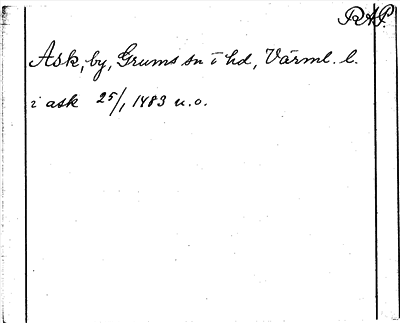 RAP.
Ask, by, Grums sn i hd, Värml. l.
i ask 25/1 1483 u.o.